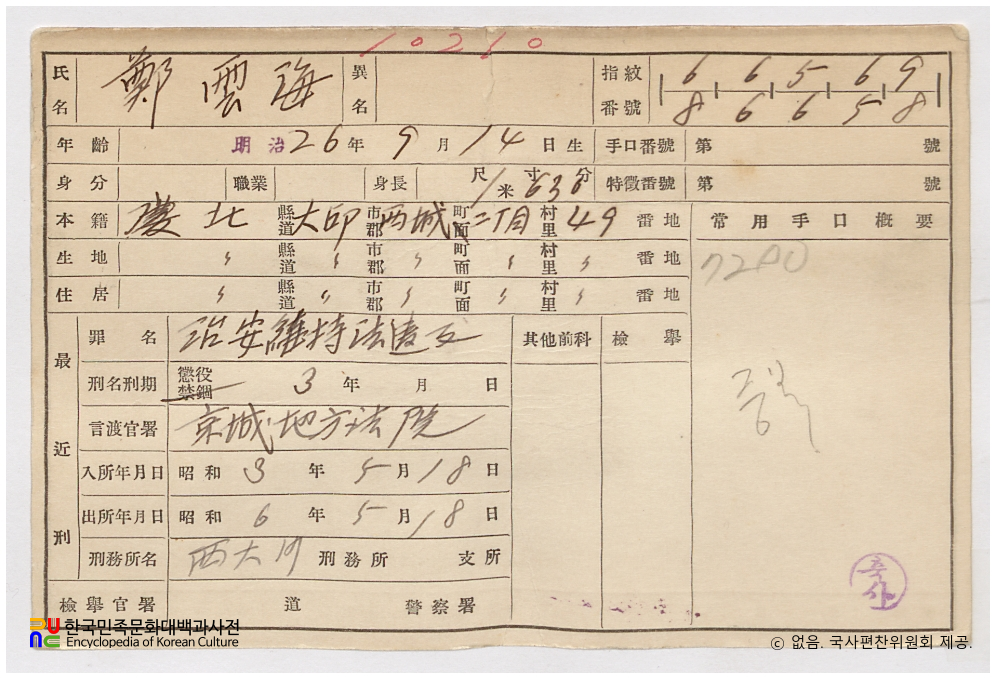 10210
氏名 鄭雲海 異名 指紋番號 6 6 5 6 9
8 6 6 5 8
年齡 明治26年9月14日生 手口番號 第 號
身分 職業 身長 尺寸分 1米636 特徵番號 第 號
本籍 慶北 縣道 大邱 市郡 西城 町面 二丁目 村里 49 番地 常用手口概要
生地 〃 縣道 〃 市郡 〃 町面 〃 村里 〃 番地 7200
住居 〃 縣道 〃 市郡 〃 町面 〃 村里 〃 番地
最近刑
罪名 治安維持法違反 其他前科 檢擧
刑名刑期 懲役 禁錮 3年 月 日
言渡官署 京城地方法院
入所年月日 昭和3年5月18日
出所年月日 昭和6年5月18日
刑務所名 西大門 刑務所 支所
檢擧官署 道 警察署
한국민족문화대백과사전
Encyclopedia of Korean Culture
ⓒ 없음. 국사편찬위원회 제공.